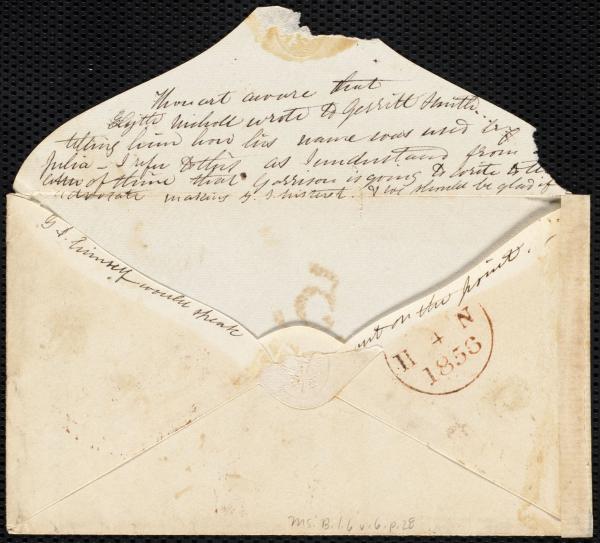 Thou art aware that
Nichol wrote to Gerritt Smith
telling him how his name was used by
Julia - I refer to this as I understand from
of thine that Garrison is going to write to the
Advocate making G. S. I we should be glad if
G S. himself would speak
out on the point.
H
4
N
1856
Ms. B.1.6 v.6, p.28